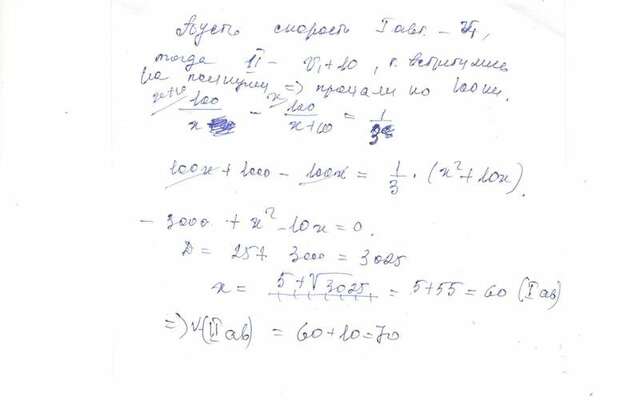 Пусть скорость I авт. – V₁,
тогда II – V₁+10, т. встретились
на полпути => проехали по 100 км.
x+10 x
100/x – 100/(x+10) = 1/3
100x + 1000 – 100x = 1/3 · (x² + 10x).
– 3000 + x² – 10x = 0.
D = 25 + 3000 = 3025
x = 5+√3025 = 5+55 = 60 (I ав)
=> V(II ав) = 60+10=70